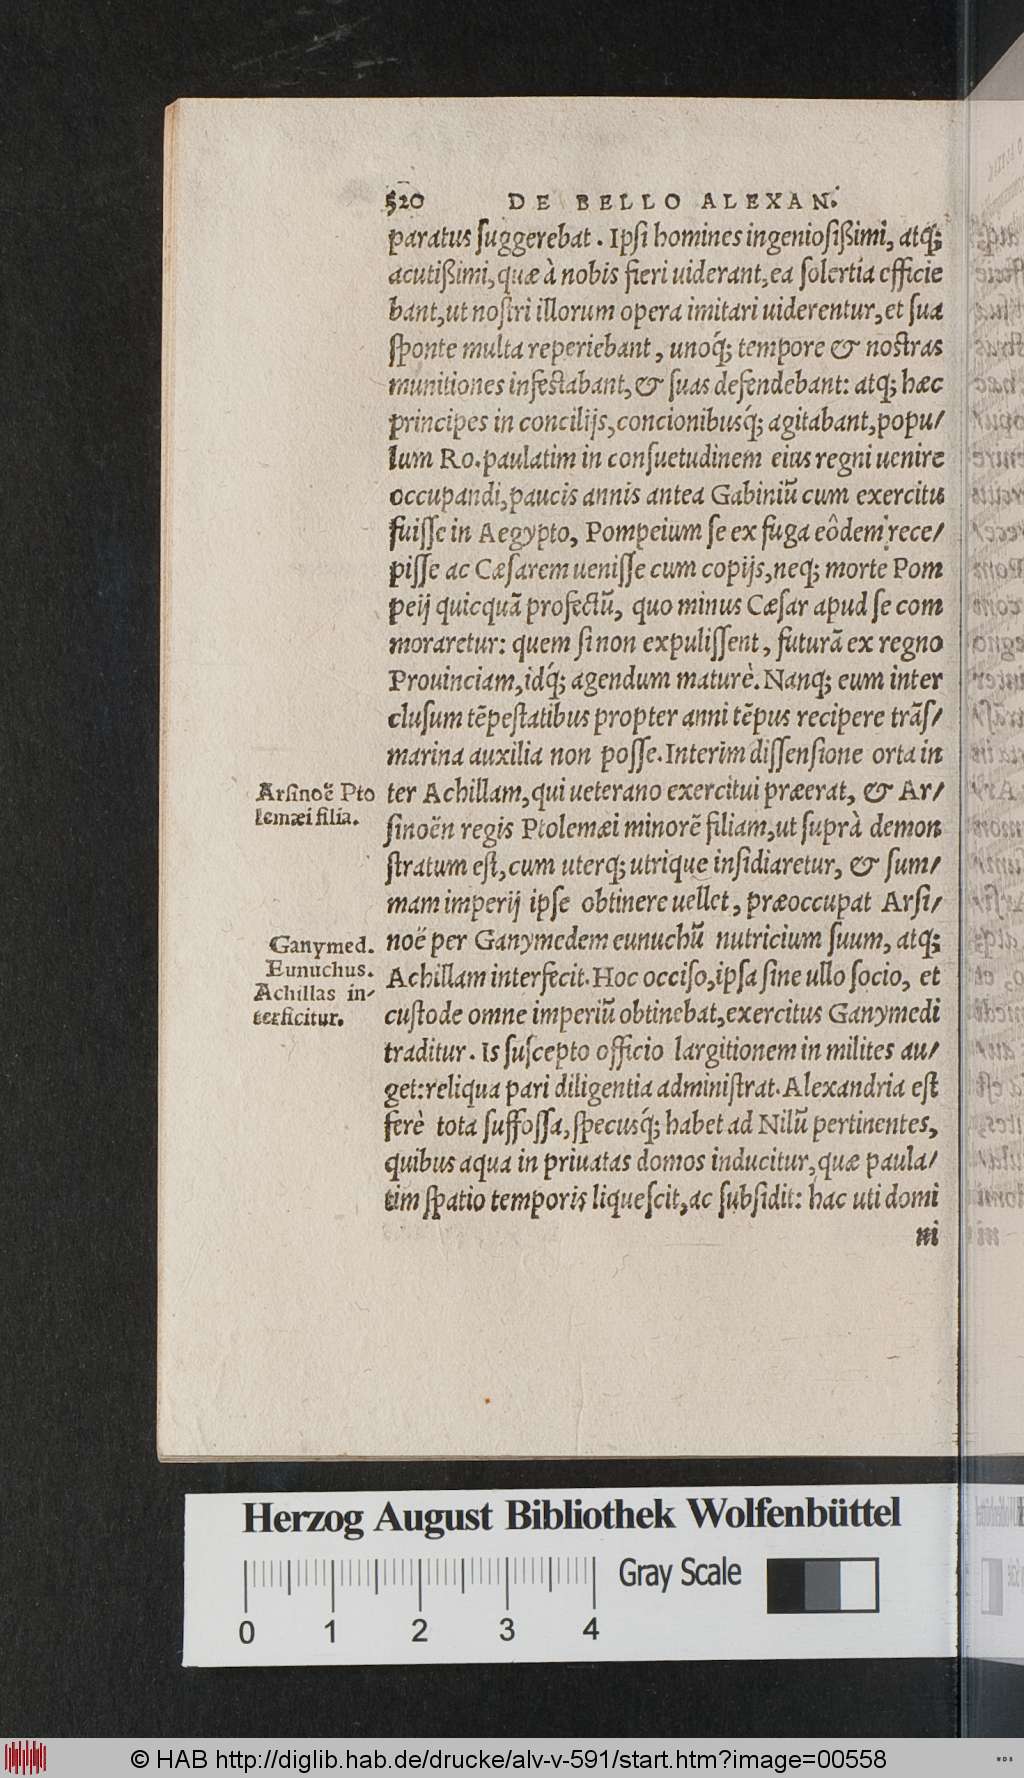 520 DE BELLO ALEXAN.
paratus ſuggerebat. Ipſi homines ingenioſißimi, atq́;
acutißimi, quæ à nobis fieri uiderant, ea ſolertia efficie
bant, ut noſtri illorum opera imitari uiderentur, et ſua
ſponte multa reperiebant, unoq́; tempore & noſtras
munitiones infeſtabant, & ſuas defendebant: atq; hæc
principes in concilijs, concionibusq́; agitabant, popu/
lum Ro. paulatim in conſuetudinem eius regni uenire
occupandi, paucis annis antea Gabiniũ cum exercitu
fuiſſe in Aegypto, Pompeium ſe ex fuga eôdem rece/
piſſe ac Cæſarem ueniſſe cum copijs, neq; morte Pom
peij quicquã profectũ, quo minus Cæſar apud ſe com
moraretur: quem ſi non expuliſſent, futurã ex regno
Prouinciam, idq́; agendum maturè. Nanq; eum inter
cluſum tẽpeſtatibus propter anni tẽpus recipere trãſ/
marina auxilia non poſſe. Interim diſſenſione orta in
Arſinoë Pto
lemæi filia.
ter Achillam, qui ueterano exercitui præerat, & Ar/
ſinoën regis Ptolemæi minorẽ filiam, ut ſuprà demon
ſtratum eſt, cum uterq; utrique inſidiaretur, & ſum/
mam imperij ipſe obtinere uellet, præoccupat Arſi/
Ganymed.
Eunuchus.
Achillas in-
terficitur.
noë per Ganymedem eunuchũ nutricium ſuum, atq;
Achillam interfecit. Hoc occiſo, ipſa ſine ullo ſocio, et
cuſtode omne imperiũ obtinebat, exercitus Ganymedi
traditur. Is ſuſcepto officio largitionem in milites au/
get: reliqua pari diligentia adminiſtrat. Alexandria eſt
ferè tota ſuffoſſa, ſpecusq́; habet ad Nilũ pertinentes,
quibus aqua in priuatas domos inducitur, quæ paula/
tim ſpatio temporis liqueſcit, ac ſubſidit: hac uti domi
ni
Herzog August Bibliothek Wolfenbüttel
Gray Scale
0 1 2 3 4
© HAB http://diglib.hab.de/drucke/alv-v-591/start.htm?image=00558